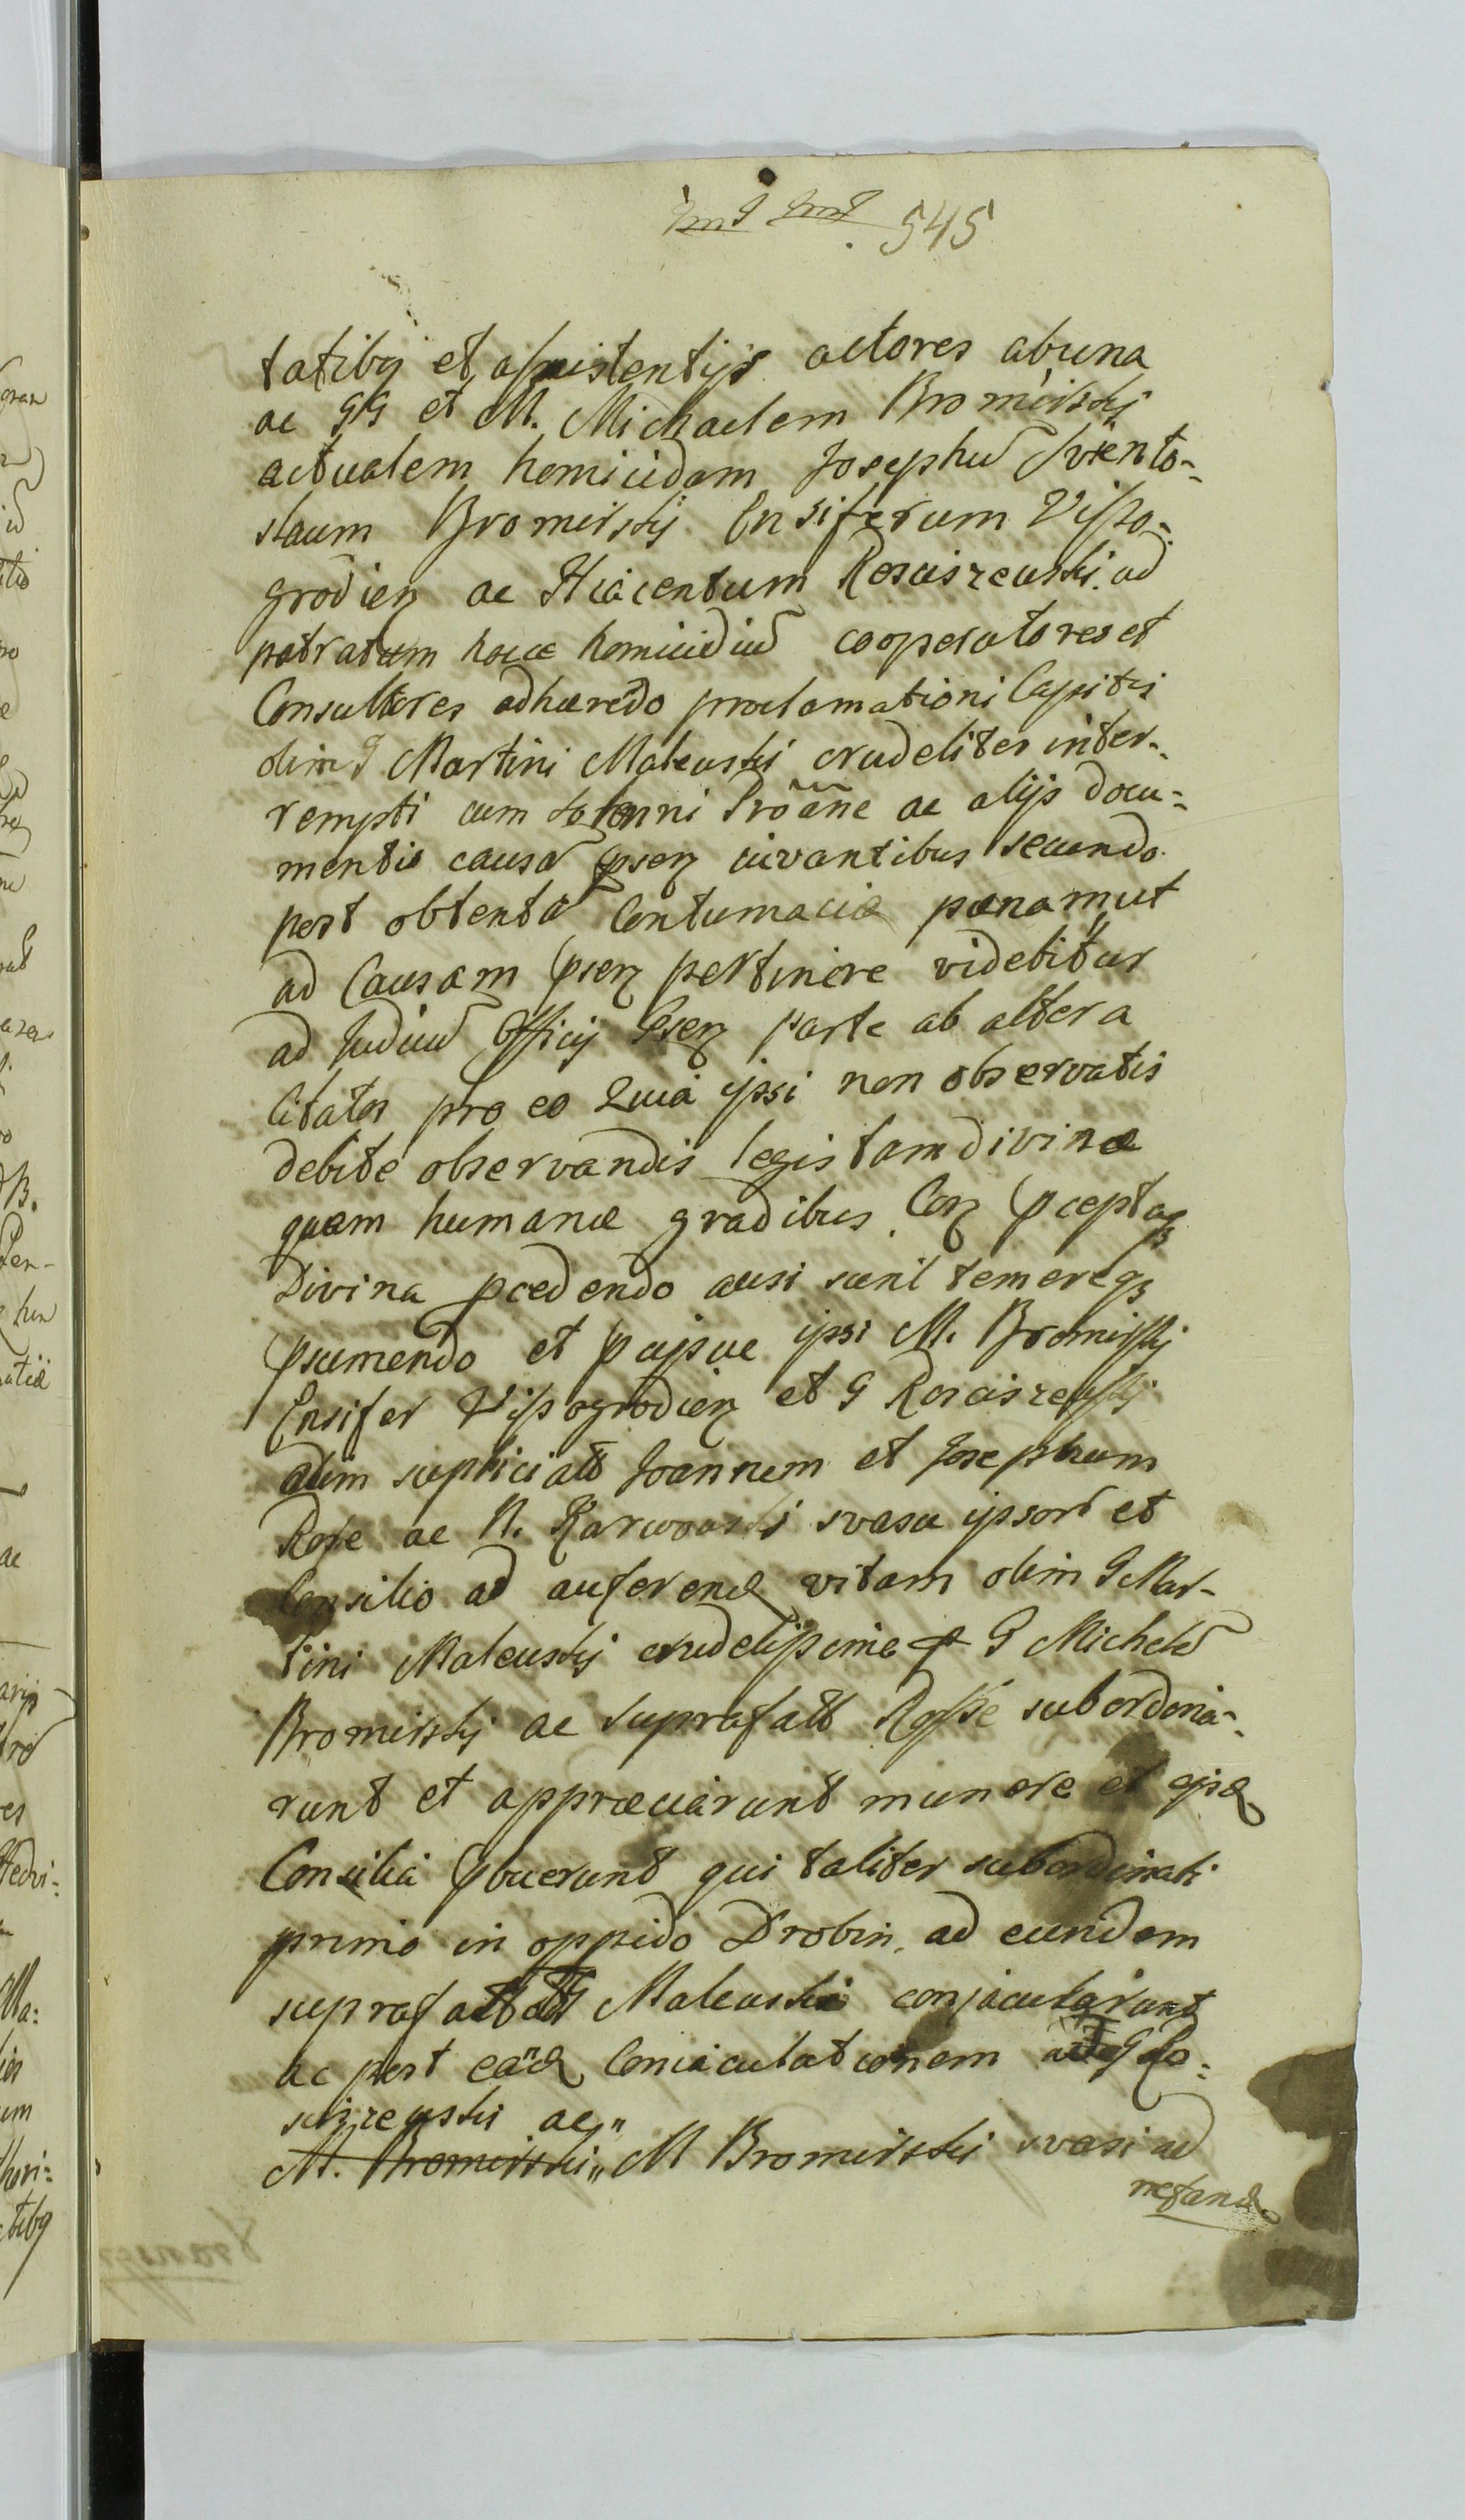 545
tatibq et assistentijs actores abuna
ac GG et M. Michaelem Bromirskij
actualem homicidam Josephu Swiento-
slaum Bromirskij Ensiferum Visso-
grodien ac Hiacentum Rosciszeuski ad
patratum hocce homicidiu cooperatores et
Consultores adhaerēdo proclamationi Capitis
olim G Martini Maleuski crudeliter inter-
rempti cum solenni Prōāne ac alijs docu-
mentis causā pñsen iuvantibus secundo
post obtentā Contumaciæ pænam ut
ad Causam pñsen pertinere videbitur
ad Judiciu Officij Pñsen parte ab altera
Citatos pro eo Quia ipsi non observatis
debite observandis legis tam divinæ
quam humanæ gradibus Con pceptaq
Divina pcedendo ausi sunt temereq
psumendo et pcipue ipsi M. Bromirskij
Ensifer Vissogrodien et G Rosciszeuskij
olim supliciatt Joannem et Josephum
Rose ac N. Karwouski svasu ipsorū et
Consilio ad auferend vitam olim G Mar-
tini Maleuskij crudelissime p G Michelē
Bromirskij ac suprafatt Rosse subordina-
runt et appræciarunt munere et ejsd
Consilia pbuerunt qui taliter subordinati
primo in oppido Drobin ad eundem
suprafatt G Maleuski conjacularunt
ac post eand Coniaculationem a G Ro-
sciszeuski ac
M. Bromirski M Bromirski svasi ad
nefand